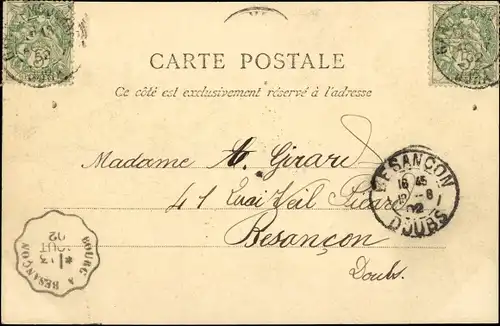 CARTE POSTALE
Ce côté est exclusivement réservé à l'adresse
Madame A. Girard
41 Quai Veil Picard
Besançon
Doubs.
BESANÇON
16 45
02
DOUBS
BOURG A BESANÇON
13
AOUT
02
JURA
5
JURA